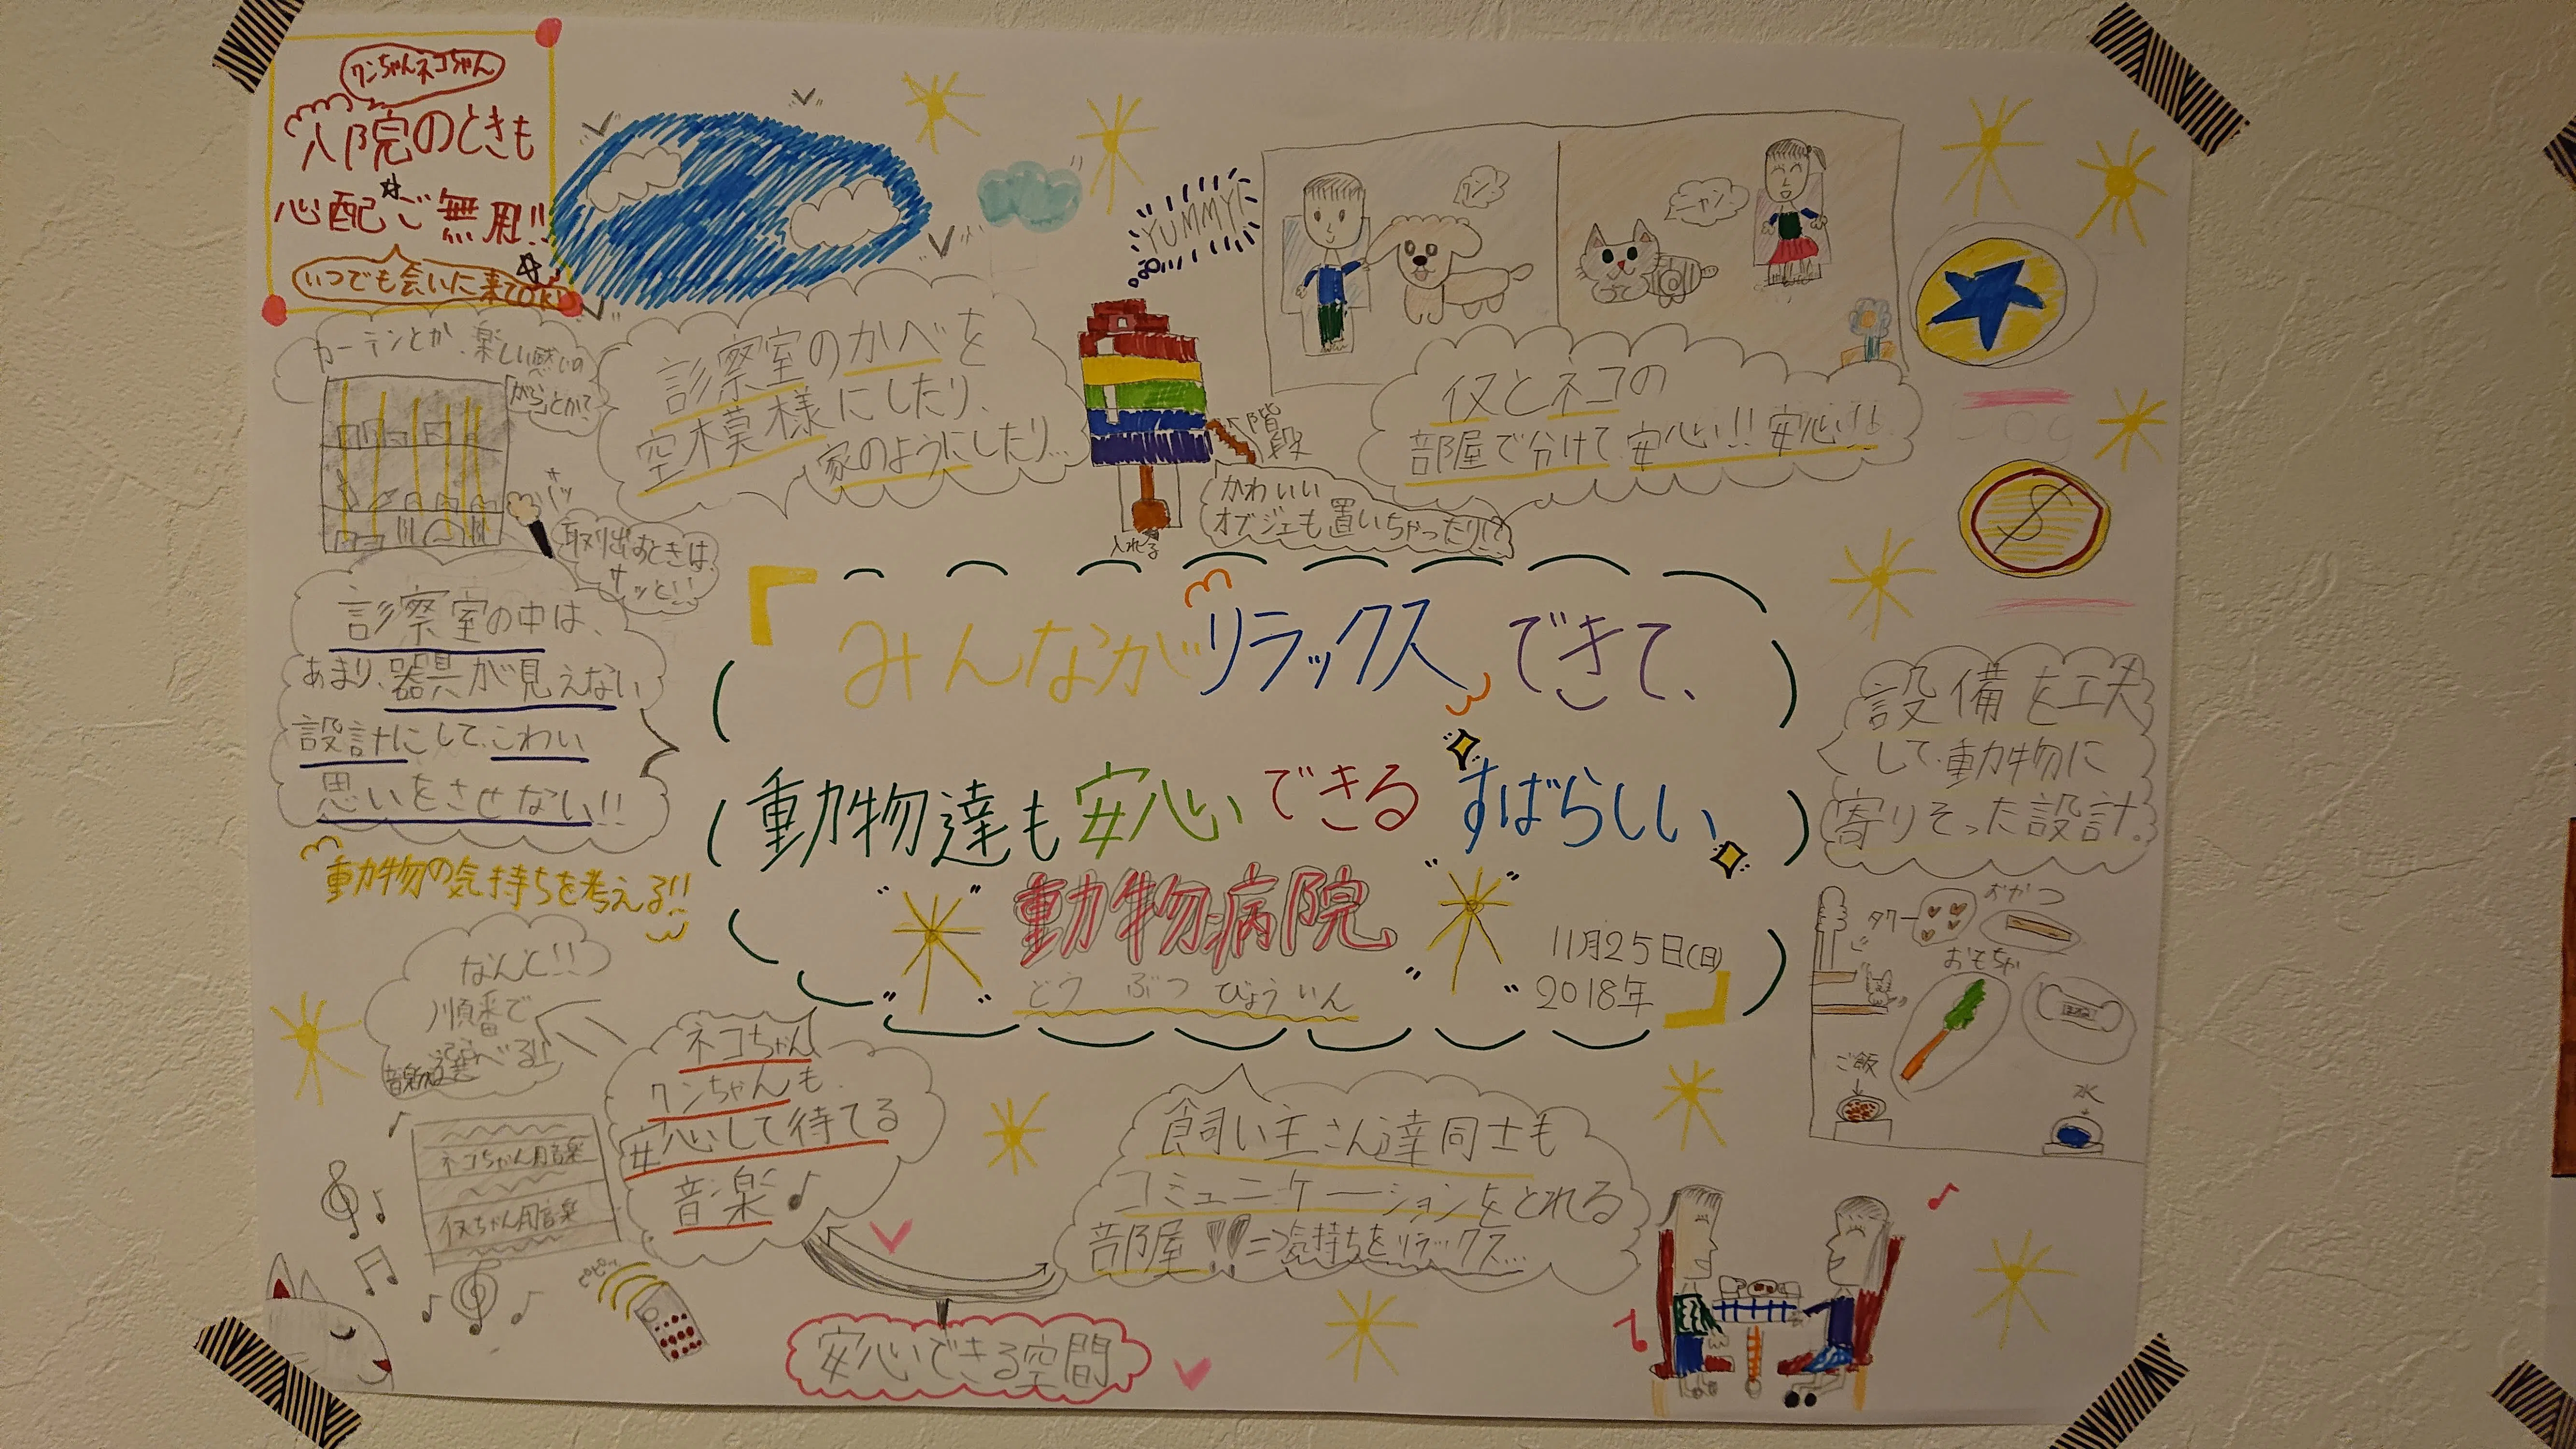 ワンちゃんネコちゃん
入院のときも
心配ご無用!!
いつでも会いに来てOK!
YUMMY!
ワン
ニャン
カーテンとか、楽しい感じの
がらとかで
診察室のかべを
空模様にしたり、
家のようにしたり…
階段
かわいい
オブジェも置いちゃったり!?
入れる
イヌとネコの
部屋で分けて安心!!安心!!
取り出すときは、
サッと!!
診察室の中は、
あまり、器具が見えない
設計にして、こわい
思いをさせない!!
動物の気持ちを考える!!
「みんながリラックスできて、
動物達も安心できるすばらしい
動物病院
どうぶつびょういん
11月25日(日)
2018年」
設備を工夫
して、動物に
寄りそった設計。
タワー
おやつ
おもちゃ
ご飯
水
なんと!!
順番で
音楽選べる!!
ネコちゃん
ワンちゃんも
安心して待てる
音楽♪
ネコちゃん用音楽
イヌちゃん用音楽
飼い主さん達同士も
コミュニケーションをとれる
部屋!!⇒気持ちをリラックス…
安心できる空間